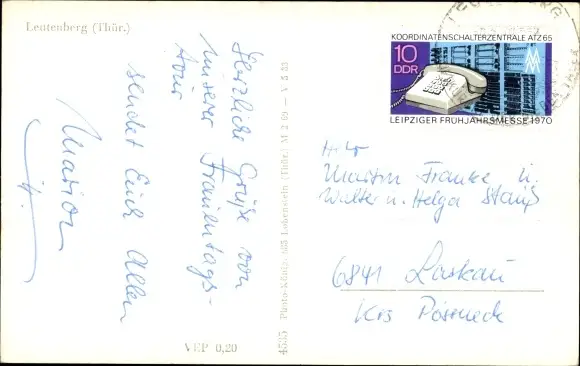 Leutenberg (Thür.)
Herzliche Grüße von
unserer Frauentags-
tour
sendet Euch Allen
Marion
VEP 0,20
4535 Photo-König, 685 Lobenstein (Thür.) M 2 69 - V 5 33
KOORDINATENSCHALTERZENTRALE ATZ 65
10
DDR
LEIPZIGER FRÜHJAHRSMESSE 1970
Martin Franke u.
Walter u. Helga Stauß
6841 Laskau
Krs Pössneck